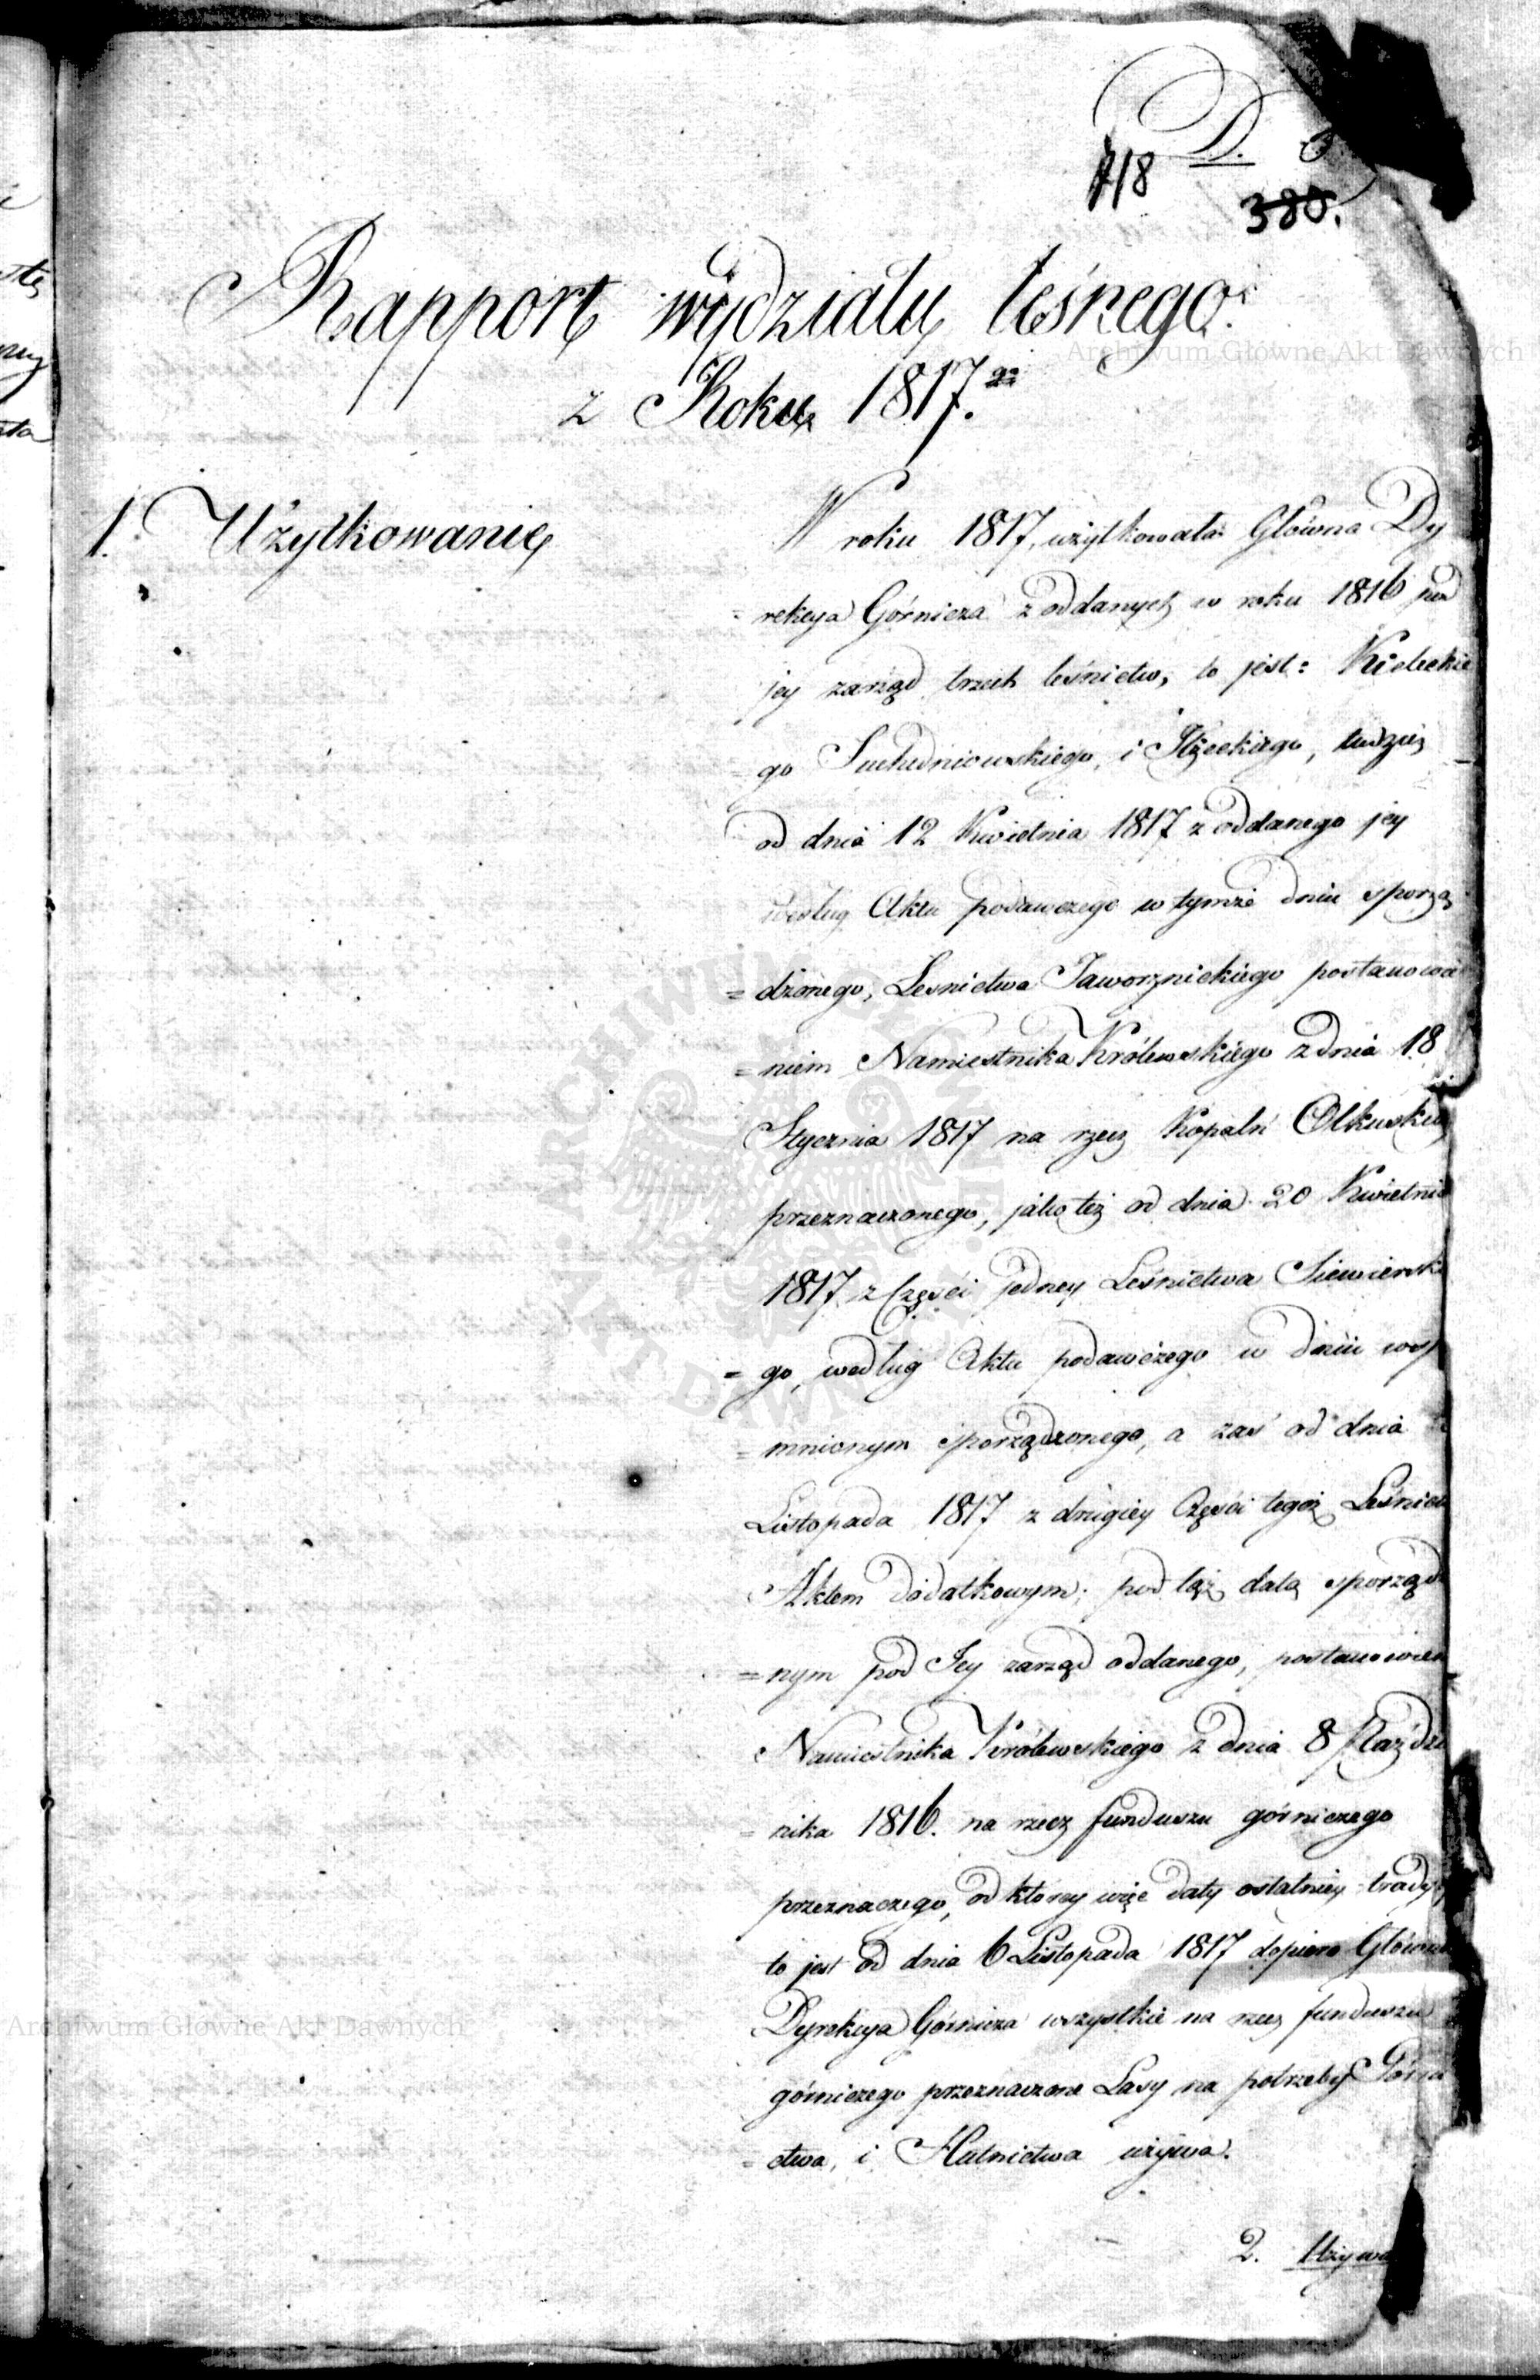 D.
718
380.
Rapport wydziału leśnego
z Roku 1817.go
1. Użytkowanie
W roku 1817, użytkowała Główna Dy
rekcya Górnicza z oddanych w roku 1816 pod
jey zarząd trzech leśnictw, to jest: Kieleckie
= go Suchedniowskiego, i Iłżeckiego, tudzież
od dnia 12 Kwietnia 1817 z oddanego jey
według Aktu podawczego w tymże dniu sporzą
= dzonego, Leśnictwa Jaworznickiego postanowie
= niem Namiestnika Królewskiego z dnia 18
Stycznia 1817 na rzecz Kopalń Olkuskich
przeznaczonego, jako też od dnia 20 Kwietnia
1817 z Części jedney Leśnictwa Siewierskie
= go, według Aktu podawczego w dniu wsp
= mnionym sporządzonego, a zaś od dnia
Listopada 1817 z drugiey Części tegoż Leśnic
Aktem dodatkowym; pod tąż datą sporządz
= nym pod Jey zarząd oddanego, postanowien
Namiestnika Królewskiego z dnia 8 Paździe
= nika 1816. na rzecz funduszu górniczego
przeznaczego, od ktorey więc daty ostatniey tradyc
to jest od dnia 6 Listopada 1817 dopiero Główna
Dyrekcya Górnicza wszystkie na rzecz funduszu
górniczego przeznaczone Lasy na potrzeby Górni
= ctwa, i Hutnictwa używa.
2. Używa
Archiwum Główne Akt Dawnych
Archiwum Główne Akt Dawnych
ARCHIWUM GŁÓWNE AKT DAWNYCH